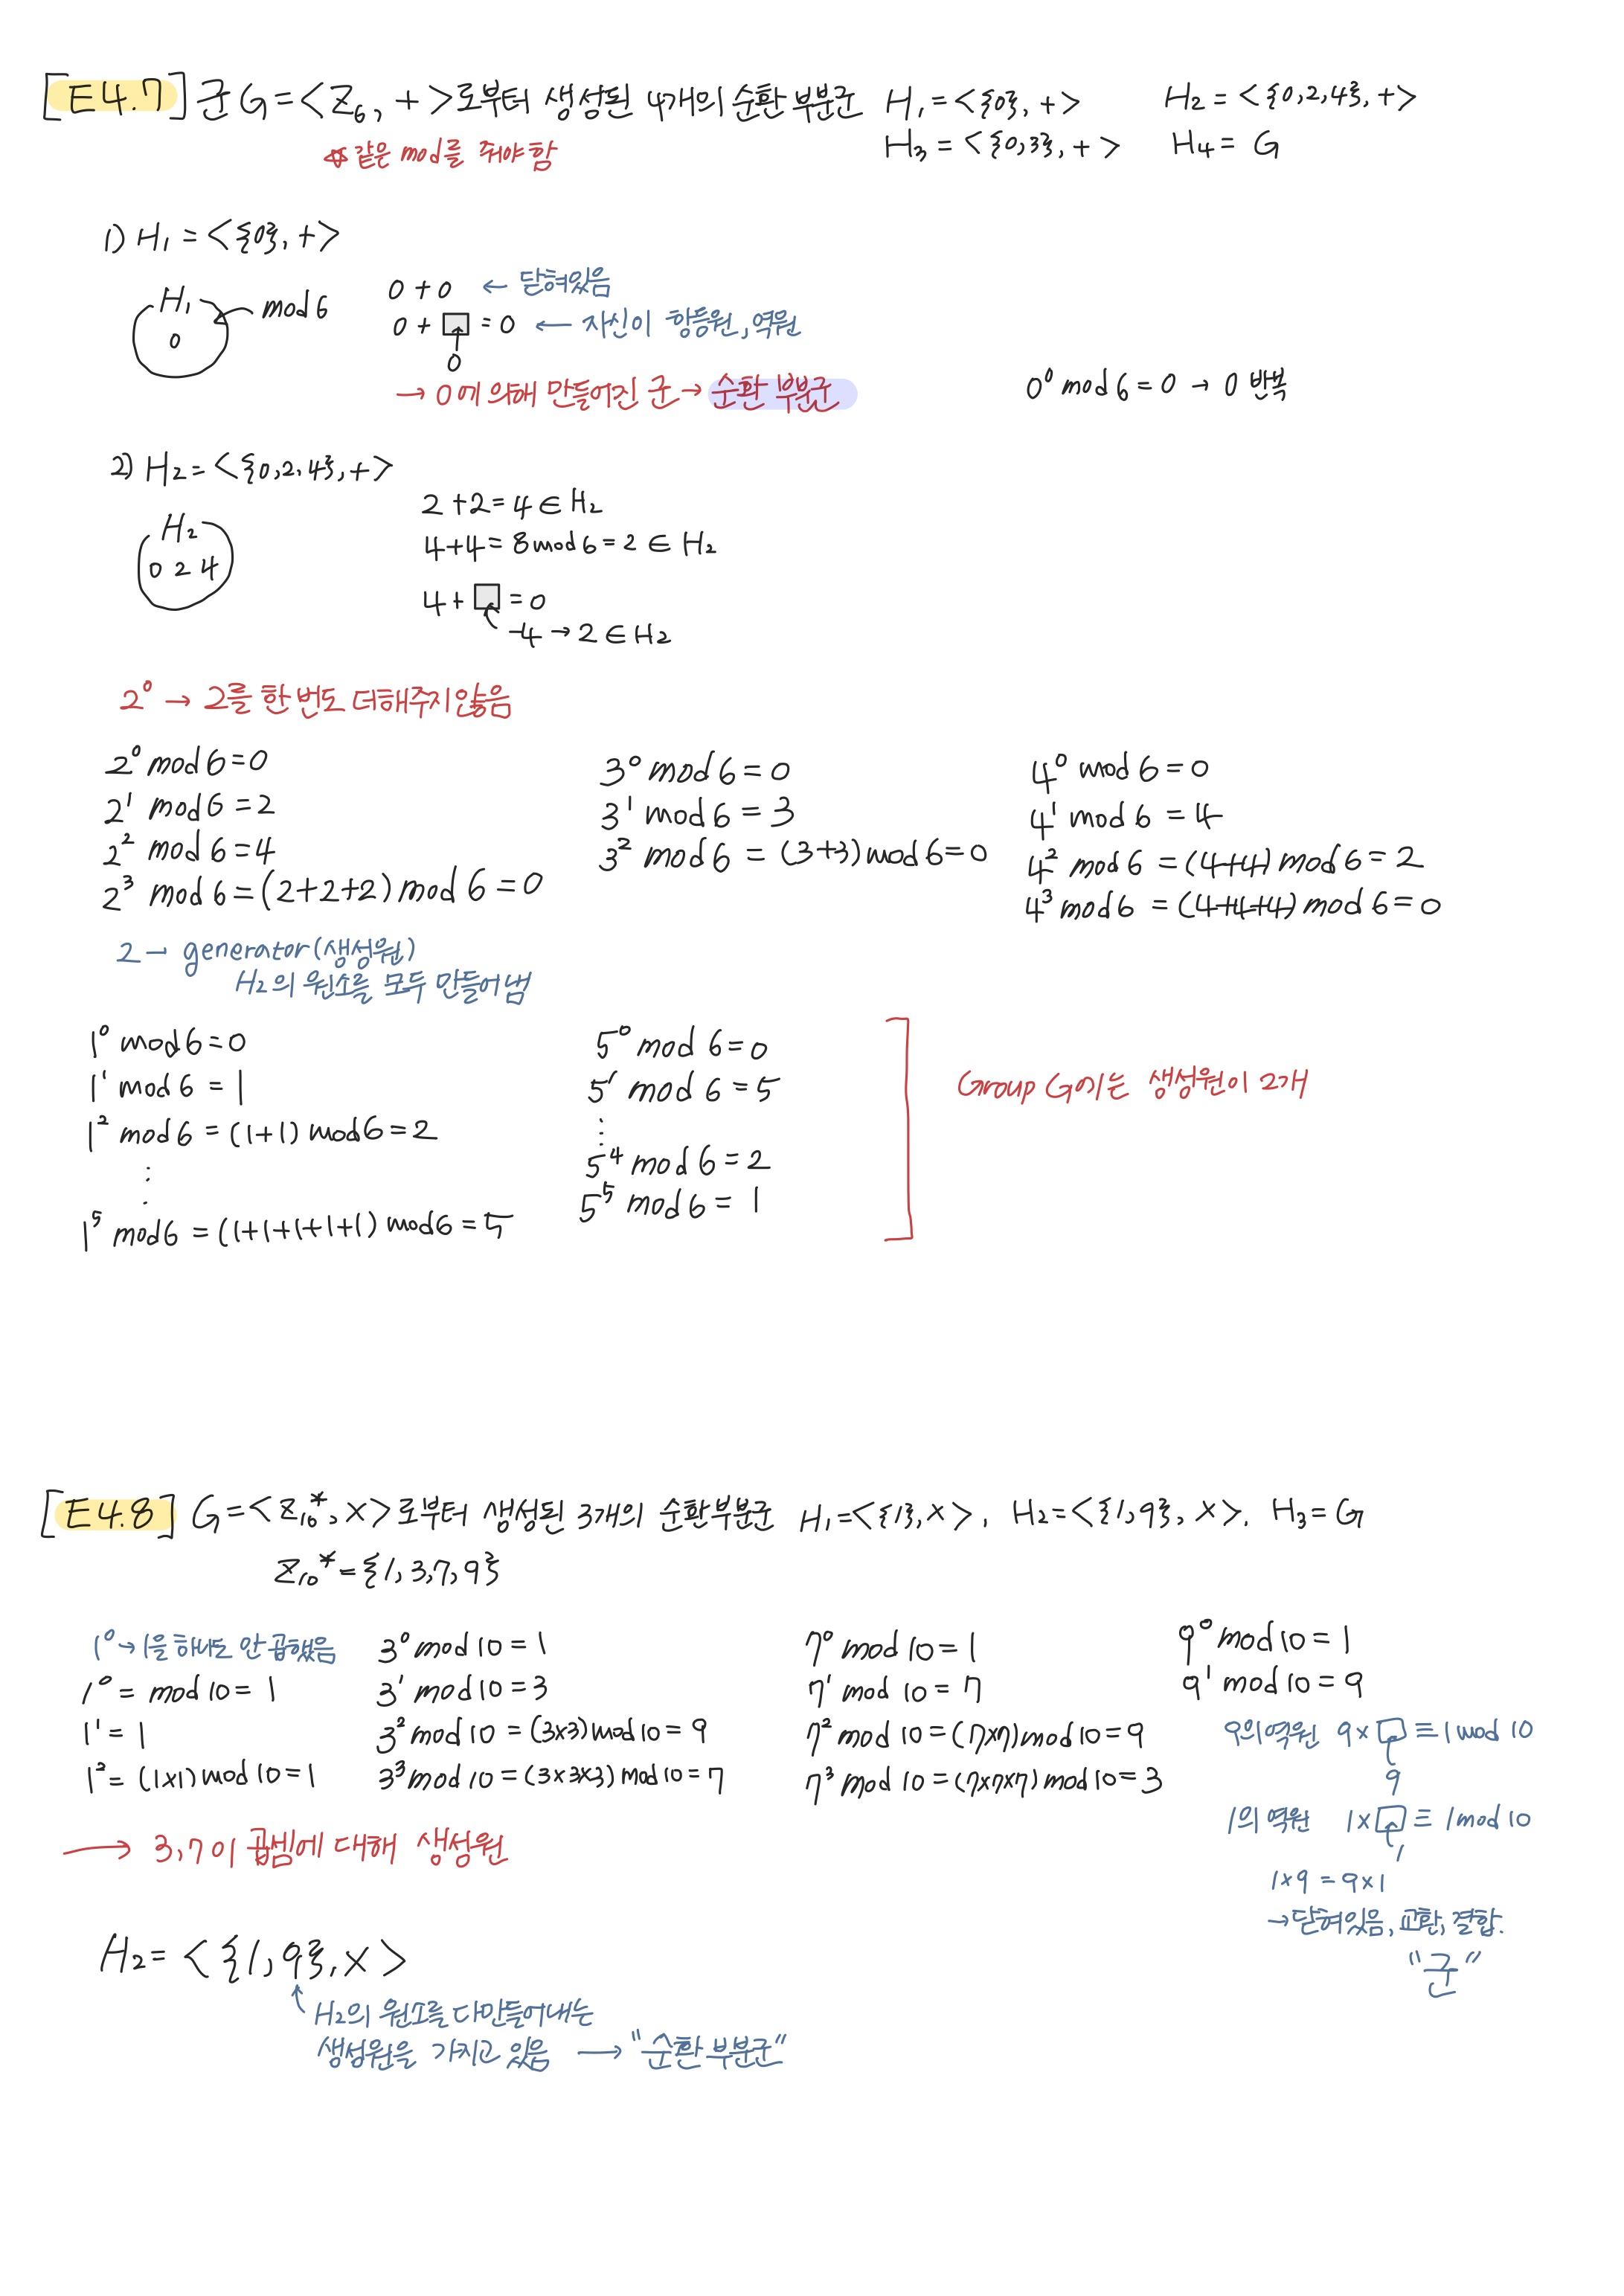 [E4.7] 군 G=<Z₆, +>로부터 생성된 4개의 순환 부분군 H₁=<{0}, +> H₂=<{0,2,4}, +>
H₃=<{0,3}, +> H₄= G
☆ 같은 mod를 줘야함
1) H₁ = <{0}, +>
H₁ mod 6
0
0 + 0 ← 닫혀있음
0 + □ = 0 ← 자신이 항등원, 역원
0
→ 0에 의해 만들어진 군 → 순환 부분군
0⁰ mod 6 = 0 → 0 반복
2) H₂ = <{0,2,4}, +>
H₂
0 2 4
2 + 2 = 4 ∈ H₂
4+4 = 8 mod 6 = 2 ∈ H₂
4 + □ = 0
-4 → 2 ∈ H₂
2⁰ → 2를 한 번도 더해주지않음
2⁰ mod 6 = 0
2¹ mod 6 = 2
2² mod 6 = 4
2³ mod 6 = (2+2+2) mod 6 = 0
3⁰ mod 6 = 0
3¹ mod 6 = 3
3² mod 6 = (3+3) mod 6 = 0
4⁰ mod 6 = 0
4¹ mod 6 = 4
4² mod 6 = (4+4) mod 6 = 2
4³ mod 6 = (4+4+4) mod 6 = 0
2 - generator(생성원)
H₂의 원소를 모두 만들어냄
1⁰ mod 6 = 0
1¹ mod 6 = 1
1² mod 6 = (1+1) mod 6 = 2
⋮
1⁵ mod 6 = (1+1+1+1+1) mod 6 = 5
5⁰ mod 6 = 0
5¹ mod 6 = 5
⋮
5⁴ mod 6 = 2
5⁵ mod 6 = 1
Group G에는 생성원이 2개
[E4.8] G=<Z₁₀*, ×>로부터 생성된 3개의 순환부분군 H₁=<{1}, ×>, H₂=<{1, 9}, ×>, H₃= G
Z₁₀* = {1, 3, 7, 9}
1⁰ → 1을 하나도 안 곱했음
1⁰ = mod 10 = 1
1¹ = 1
1² = (1×1) mod 10 = 1
3⁰ mod 10 = 1
3¹ mod 10 = 3
3² mod 10 = (3×3) mod 10 = 9
3³ mod 10 = (3×3×3) mod 10 = 7
7⁰ mod 10 = 1
7¹ mod 10 = 7
7² mod 10 = (7×7) mod 10 = 9
7³ mod 10 = (7×7×7) mod 10 = 3
9⁰ mod 10 = 1
9¹ mod 10 = 9
9의역원 9×□ ≡ 1 mod 10
9
1의 역원 1×□ ≡ 1 mod 10
1
1×9 = 9×1
→ 닫혀있음, 교환, 결합.
"군"
→ 3, 7이 곱셈에 대해 생성원
H₂ = <{1, 9}, ×>
H₂의 원소를 다만들어내는
생성원을 가지고 있음 → "순환 부분군"